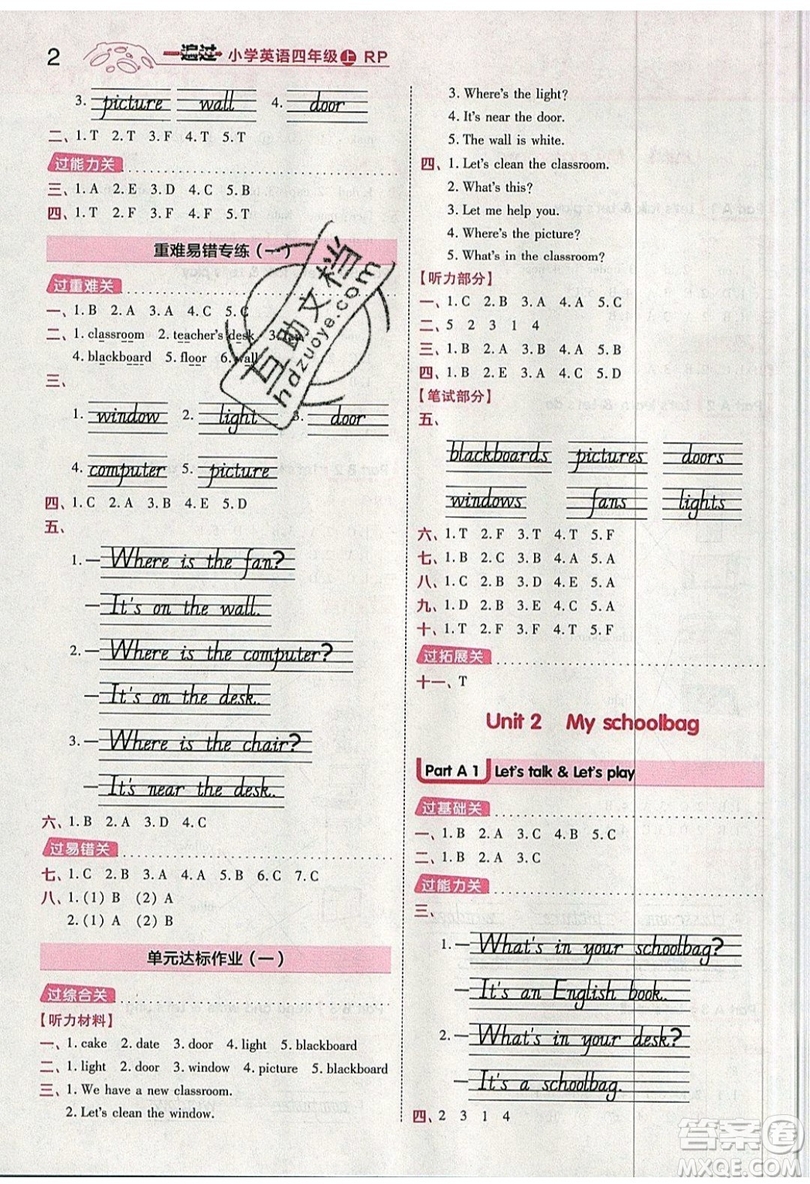 2 一遍过 小学英语四年级上 RP
3. picture wall 4. door
二、1. T 2. F 3. F 4. T 5. T
过能力关
三、1. A 2. E 3. D 4. C 5. B
四、1. T 2. F 3. F 4. T 5. T
重难易错专练（一）
过重难关
一、1. B 2. A 3. C 4. B 5. C
二、1. classroom 2. teacher's desk 3.
4. blackboard 5. floor 6. wall
三、
1. window 2. light 3. door
4. computer 5. picture
四、1. C 2. A 3. D 4. B 5. A
五、
1. —Where is the fan?
—It's on the wall.
2. —Where is the computer?
—It's on the desk.
3. —Where is the chair?
—It's near the desk.
六、1. B 2. A 3. D 4. C
过易错关
七、1. C 2. A 3. B 4. B 5. C 6. C 7. C
八、1. (1) B (2) A
2. (1) B (2) A
单元达标作业（一）
过综合关
【听力材料】
一、1. cake 2. date 3. door 4. light 5. blackboard
二、1. light 2. door 3. window 4. picture 5. blackboard
三、1. We have a new classroom.
2. Let's clean the window.
3. Where's the light?
4. It's near the door.
5. The wall is white.
四、1. Let's clean the classroom.
2. What's this?
3. Let me help you.
4. Where's the picture?
5. What's in the classroom?
【听力部分】
一、1. B 2. B 3. A 4. C 5. A
二、5 2 3 1 4
三、1. B 2. A 3. A 4. B 5. B
四、1. C 2. B 3. A 4. C 5. B
【笔试部分】
五、
blackboards pictures doors
windows fans lights
六、1. T 2. F 3. T 4. T 5. F
七、1. C 2. B 3. C 4. B 5. A
八、1. C 2. B 3. D 4. E 5. A
九、1. D 2. B 3. C 4. E 5. A
十、1. T 2. F 3. F 4. T 5. F
过拓展关
十一、T
Unit 2 My schoolbag
Part A 1 Let's talk & Let's play
过基础关
一、1. B 2. A 3. C 4. B 5. C
二、1. B 2. A 3. C
过能力关
三、
1. —What's in your schoolbag?
—It's an English book.
2. —What's in your desk?
—It's a schoolbag.
四、2 3 1 4
互助文档
hdzuoye.com
答案圈
MXQE.COM